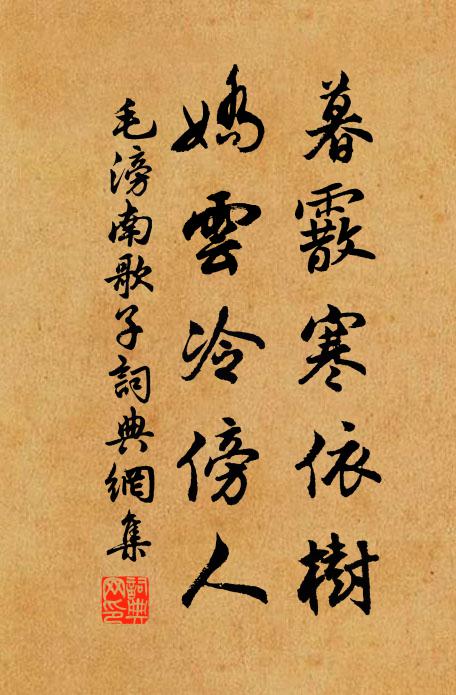 暮霰寒依樹
嬌雲冷傍人
毛滂南歌子詞典網集
詞典網印